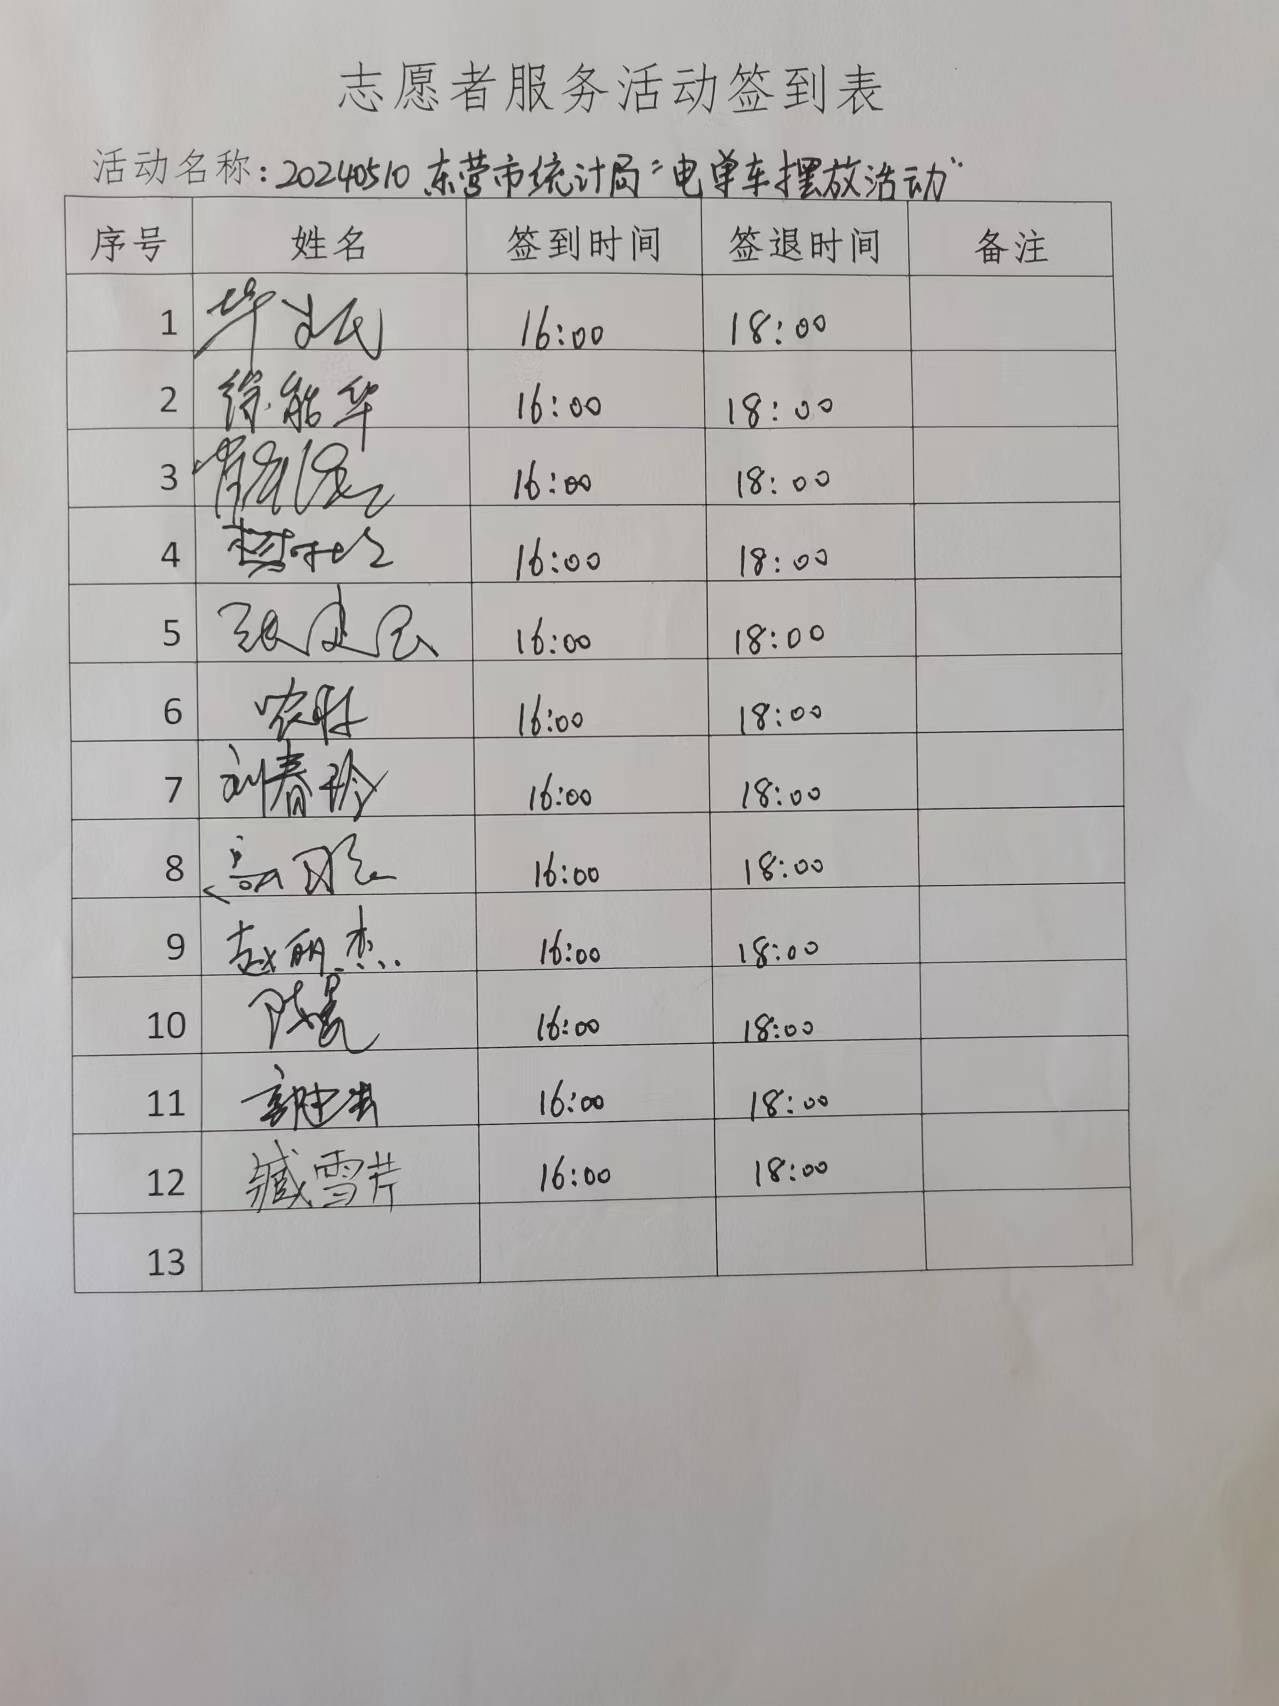 志愿者服务活动签到表
活动名称:20240510 东营市统计局“电单车摆放活动”
序号 姓名 签到时间 签退时间 备注
1 16:00 18:00
2 徐能华 16:00 18:00
3 16:00 18:00
4 16:00 18:00
5 16:00 18:00
6 16:00 18:00
7 刘春玲 16:00 18:00
8 16:00 18:00
9 赵丽杰 16:00 18:00
10 陈晨 16:00 18:00
11 16:00 18:00
12 臧雪芹 16:00 18:00
13